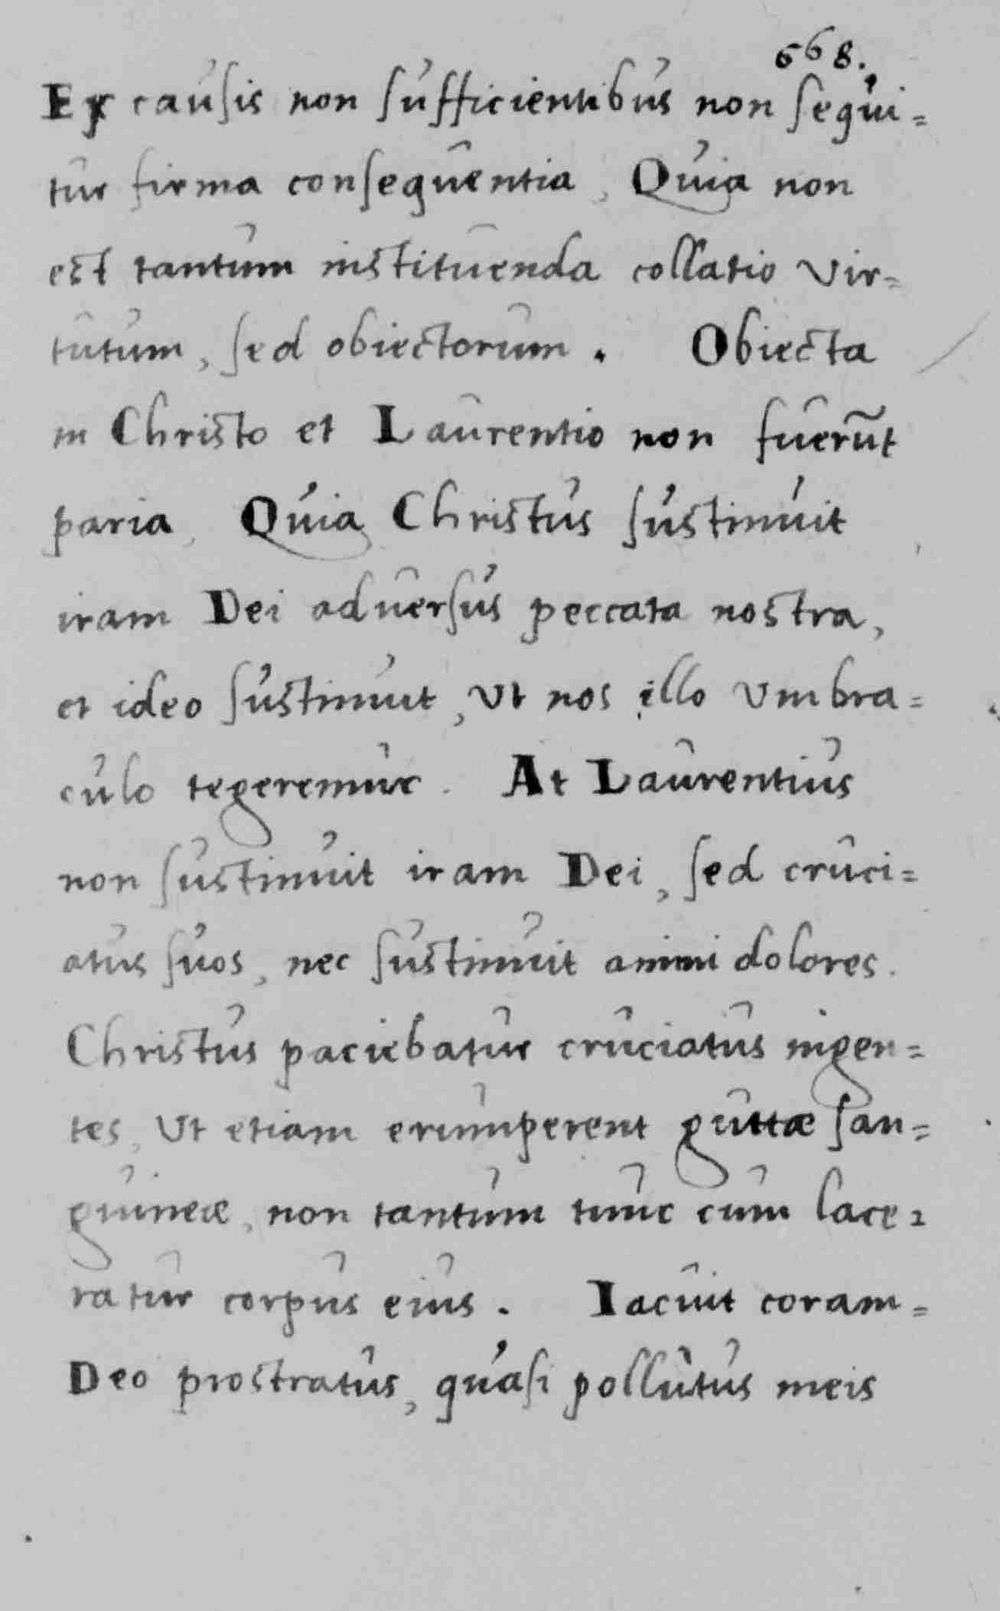 668.
Ex causis non sufficientibus non sequi=
tur firma consequentia, Quia non
est tantum instituenda collatio vir=
tutum, sed obiectorum. Obiecta
in Christo et Laurentio non fuerũt
paria, Quia Christus sustinuit
iram Dei aduersus peccata nostra,
et ideo sustinuit, Ut nos illo Umbra=
culo tegeremur. At Laurentius
non sustinuit iram Dei, sed cruci=
atus suos, nec sustinuit animi dolores.
Christus paciebatur cruciatus ingen=
tes, Ut etiam erumperent guttæ san=
guineæ, non tantum tunc cum lace=
ratur corpus eius. Iacuit coram=
Deo prostratus, quasi pollutus meis